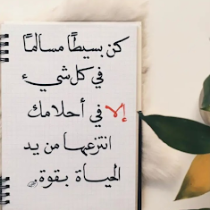 كن بسيطًا مسالمًا
في كل شيء
إلا في أحلامك
انتزعها من يد
الحياة بقوة.